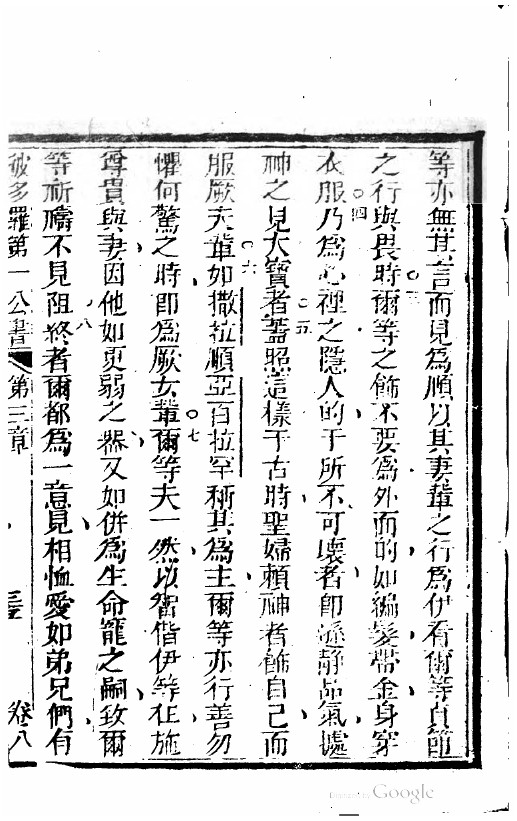 等亦無其言而見為順以其妻輩之行為伊看爾等貞節
之行與畏時爾等之飾不要為外面的如編髮帶金身穿
衣服乃為心裡之隱人的于所不可壞者即遜靜品氣處
神之見大寶者蓋照這樣于古時聖婦賴神者飾自己而
服厥夫輩如撒拉順亞百拉罕稱其為主爾等亦行善勿
懼何驚之時即為厥女輩爾等夫一然以智偕伊等住施
尊貴與妻因他如更弱之器又如併為生命寵之嗣致爾
等祈禱不見阻終者爾都為一意見相恤愛如弟兄們有
彼多羅第一公書 第三章 三 卷八
○三
○四
○五
○六
○七
八
Digitized by Google